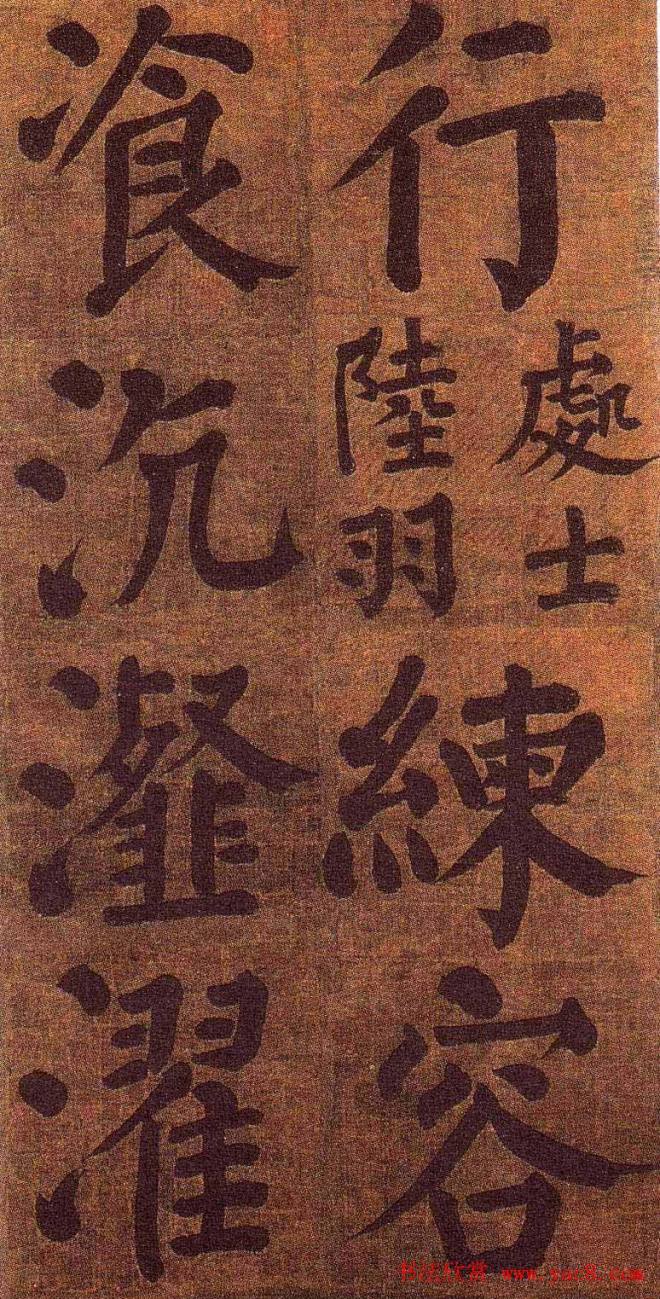 行
處士
陸羽
練容
飡沆瀣濯
书法欣赏 www.yac8.com